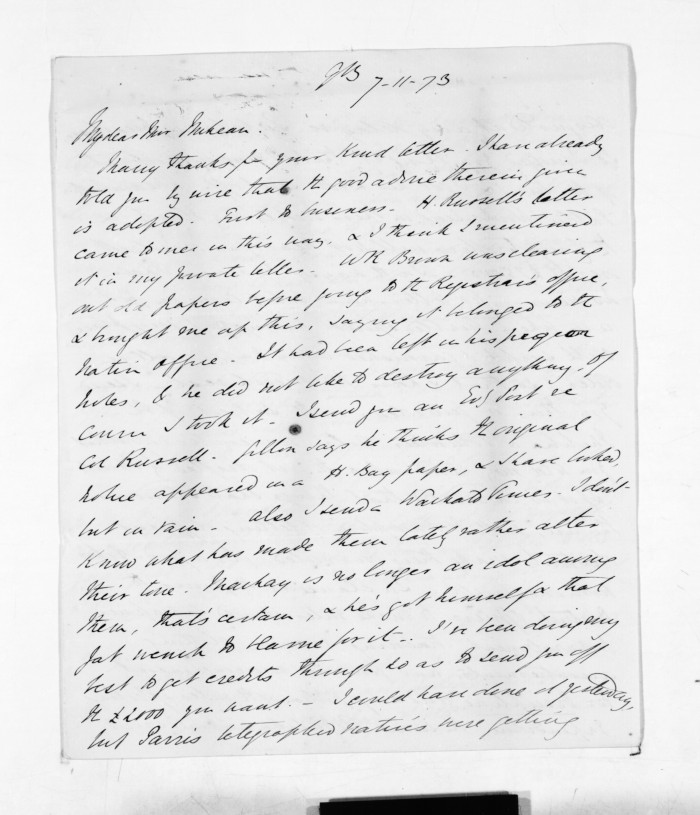 7-11-73
My dear Mr McLean.
Many thanks for your kind letter. I have already
told you by wire that the good advice therein given
is adopted. First to business. H. Russell's letter
came to me in this way, & I think I mentioned
it in my private letter. Wm Brown was clearing
out old papers before going to the Registrar's office,
& brought me up this, saying it belonged to the
Native office. It had been left in his pigeon
holes, & he did not like to destroy anything. Of
course I took it. I send you an Evg Post re
Col Russell. says he thinks the original
notice appeared in a H. Bay paper, & I have looked,
but in vain. Also I send a Waikato Times. I don't
know what has made them lately rather alter
their tone. Mackay is no longer an idol among
them, that's certain, & he's got himself & that
fat wench to blame for it. I've been doing my
best to get credits through so as to send you off
the £2000 you want. - I could have done it yesterday,
but Parris telegraphed natives were getting